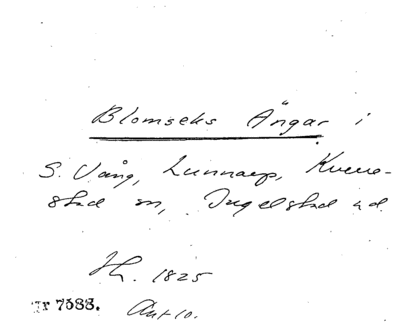 Blomseks Ängar i
S. Vång, Lunnarp, Kverre-
stad m, Ingelstad hd.
H. 1825
nr 7588. Ant 10.